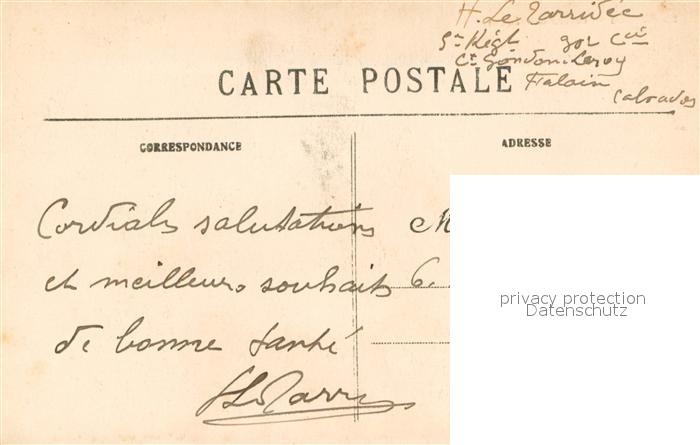 H. Le Tarridec
5e Régt 30e Cie
Ct Gondom-Leroy
Falain
Calvados
CARTE POSTALE
CORRESPONDANCE
ADRESSE
Cordiales salutations
et meilleurs souhaits
de bonne santé
HLeTarri
M
6.
privacy protection
Datenschutz